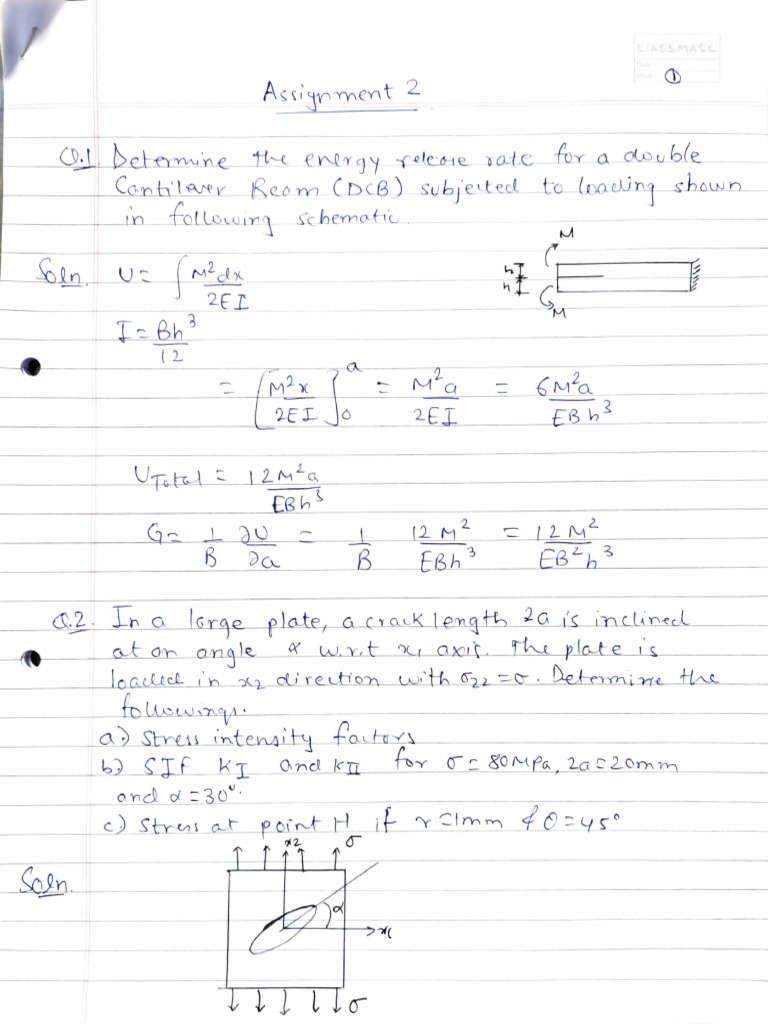 CLASSMATE
①
Assignment 2
Q.1. Determine the energy release rate for a double
Cantilever Beam (DCB) subjected to loading shown
in following schematic.
M
Soln. U = ∫ M²dx / 2EI
h
h
M
I = Bh³ / 12
= [M²x / 2EI]₀ᵃ = M²a / 2EI = 6M²a / EBh³
U Total = 12M²a / EBh³
G = 1/B ∂U/∂a = 1/B 12M² / EBh³ = 12M² / EB²h³
Q.2. In a large plate, a crack length 2a is inclined
at an angle α w.r.t x₁ axis. The plate is
loaded in x₂ direction with σ₂₂ = σ. Determine the
followings.
a) Stress intensity factors
b) SIF KI and KII for σ = 80MPa, 2a = 20mm
and α = 30°.
c) Stress at point H if r = 1mm & θ = 45°
x2 σ
Soln.
α
σ